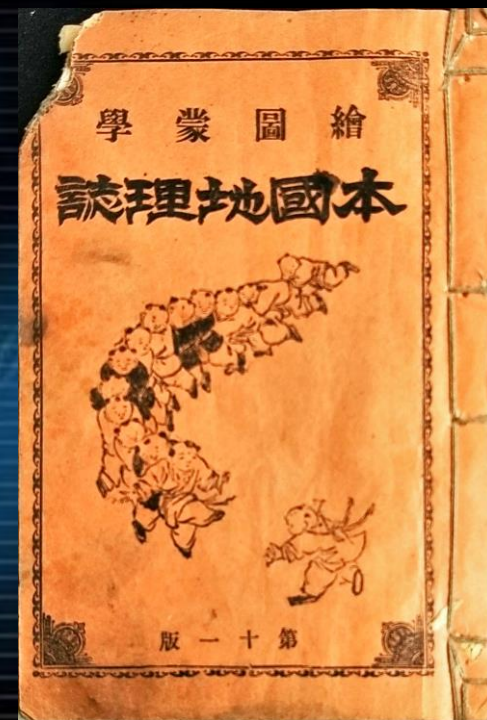 繪圖蒙學
本國地理誌
第十一版